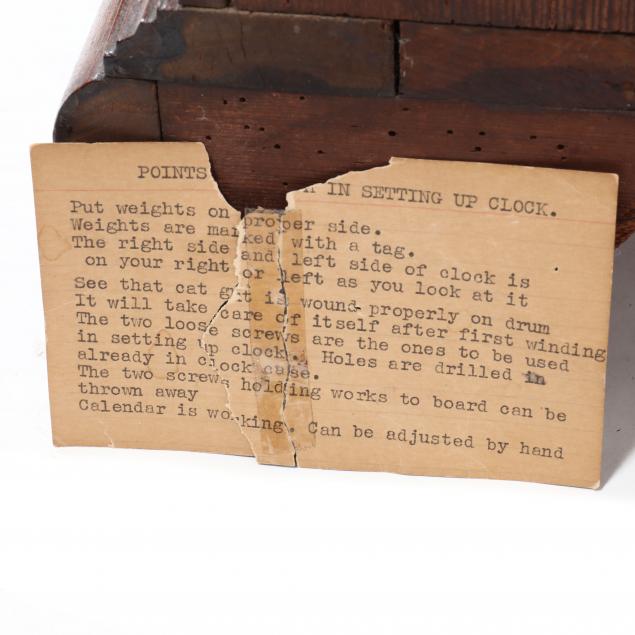 POINTS IN SETTING UP CLOCK.
Put weights on proper side.
Weights are marked with a tag.
The right side and left side of clock is
on your right or left as you look at it
See that cat gut is wound properly on drum
It will take care of itself after first winding
The two loose screws are the ones to be used
in setting up clock. Holes are drilled in
already in clock case.
The two screws holding works to board can be
thrown away
Calendar is working. Can be adjusted by hand